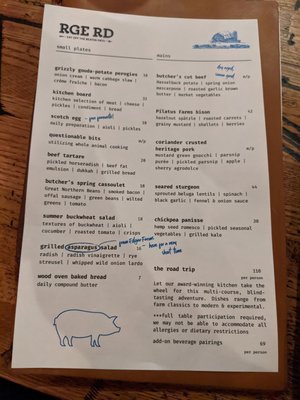 RGE RD
EAT OFF THE BEATEN PATH
small plates
grizzly gouda-potato perogies 18
onion cream | warm cabbage slaw |
crème fraîche | bacon
kitchen board 33
kitchen selection of meat | cheese |
pickles | condiment | bread
scotch egg
daily preparation | aioli | pickles
questionable bits m/p
utilizing whole animal cooking
beef tartare 20
pickled horseradish | beef fat
emulsion | dukkah | grilled bread
butcher's spring cassoulet 18
Great Northern Beans | smoked bacon |
offal sausage | green beans | wilted
greens | tomato
summer buckwheat salad 18
textures of buckwheat | aioli |
cucumber | roasted tomato | crisps
grilled asparagus salad 16
radish | radish vinaigrette | rye
streusel | whipped wild onion lardo
wood oven baked bread 7
daily compound butter
from Edgar Farms
here for a very
short time
mains
dry aged
butcher's cut beef m/p
Hasselback potato | spring onion
mascarpone | roasted garlic brown
butter | market vegetables
Pilatus Farms bison 42
hazelnut spätzle | roasted carrots |
grainy mustard | shallots | berries
coriander crusted
heritage pork m/p
mustard green gnocchi | parsnip
purée | pickled parsnip | apple |
sherry agrodolce
seared sturgeon 44
sprouted beluga lentils | spinach |
black garlic | fennel & onion sauce
chickpea panisse 30
hemp seed romesco | pickled seasonal
vegetables | grilled kale
the road trip 110
per person
Let our award-winning kitchen take the
wheel for this multi-course, blind-
tasting adventure. Dishes range from
farm classics to modern & experimental.
***full table participation required,
we may not be able to accommodate all
allergies or dietary restrictions
add-on beverage pairings 69
per person